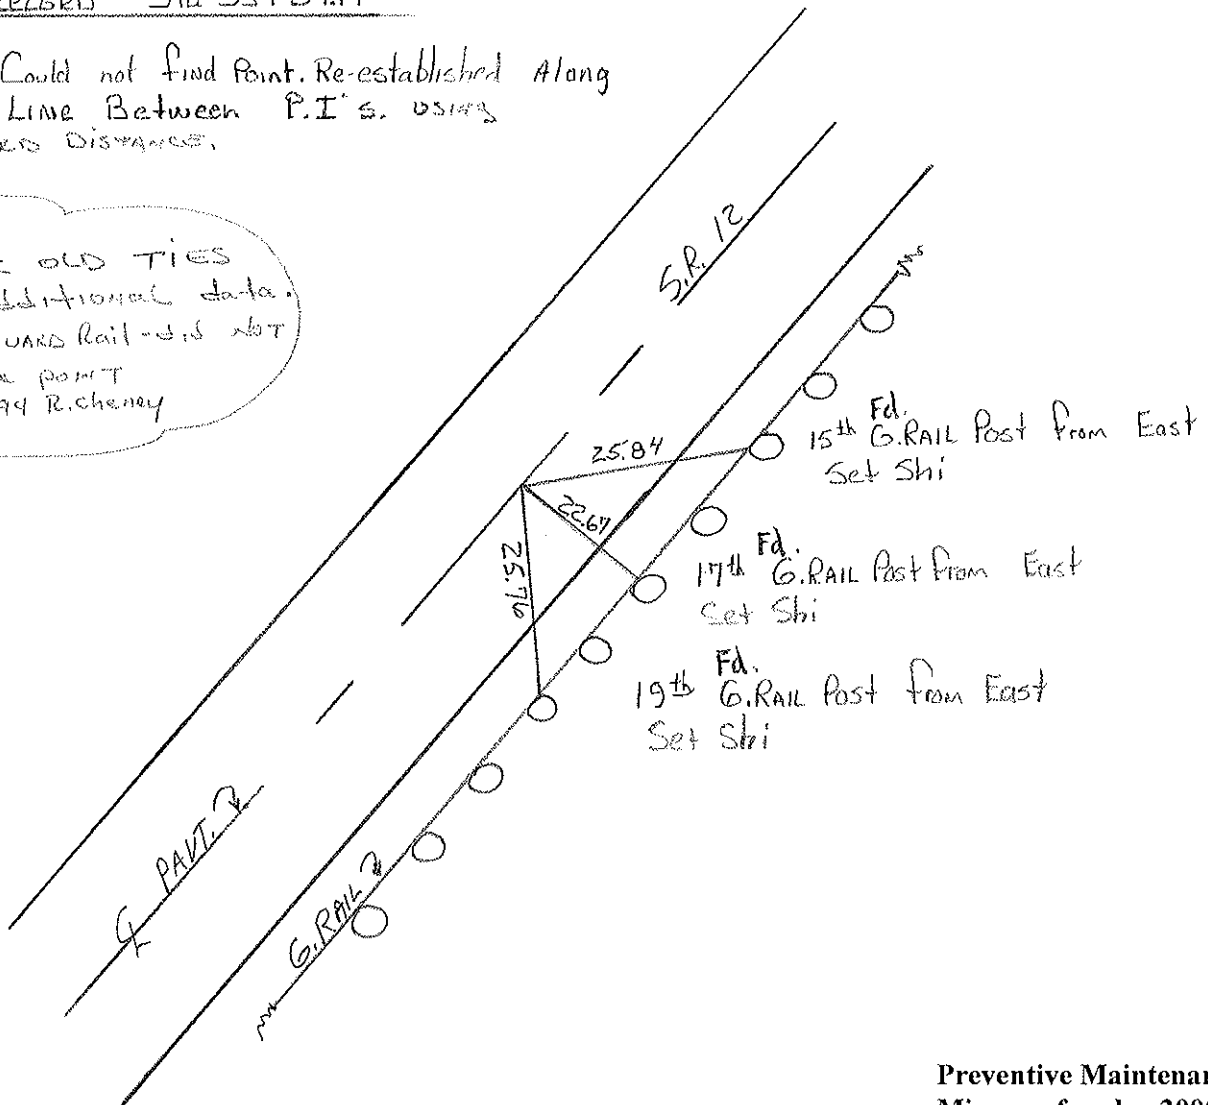 Could not find Point. Re-established Along
Line Between P.I's. using
Distance.
OLD TIES
data.
Rail - did NOT
point
94 R. Cheney
S.R. 12
25.84
22.67
25.76
Fd.
15th G.RAIL Post from East
Set Shi
Fd.
17th G.RAIL Post from East
Set Shi
Fd.
19th G.RAIL Post from East
Set Shi
℄ PAVT.
G.RAIL
Preventive Maintenan